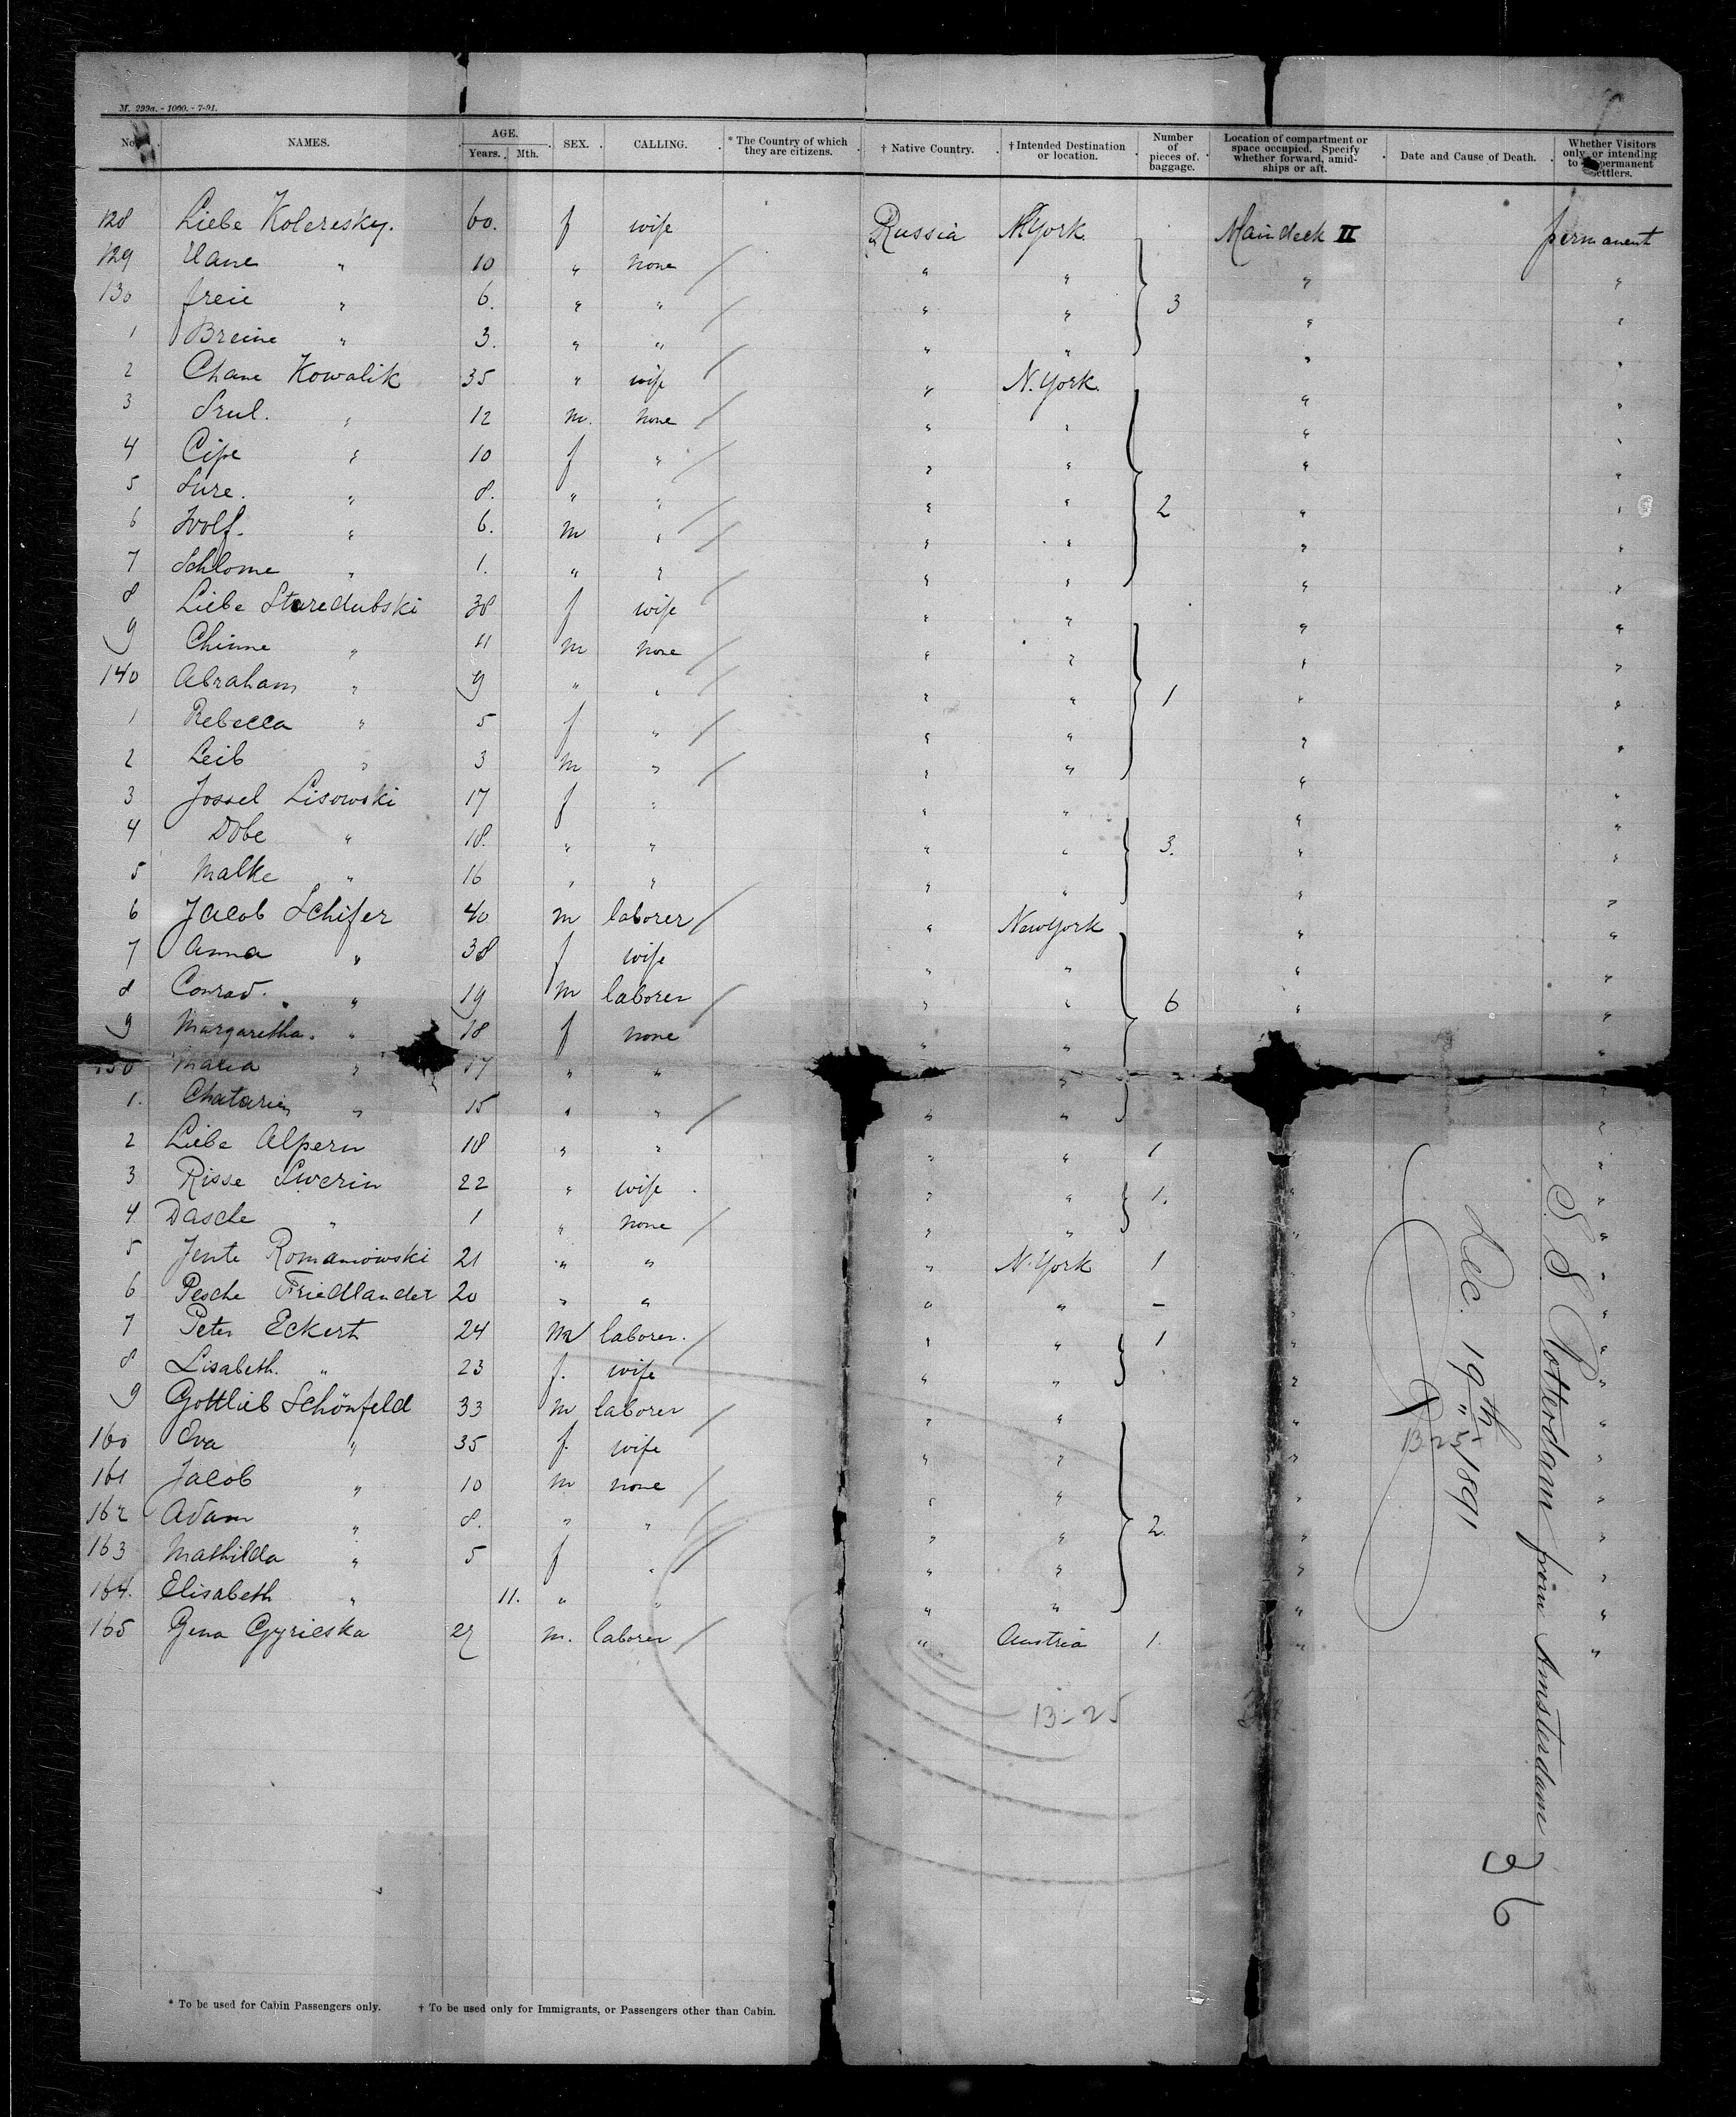 M. 299a. - 1000. - 7-91.
No. NAMES. AGE. Years. Mth. SEX. CALLING. * The Country of which they are citizens. † Native Country. † Intended Destination or location. Number of pieces of baggage. Location of compartment or space occupied. Specify whether forward, amidships or aft. Date and Cause of Death. Whether Visitors only, or intending to permanent settlers.
128 Liebe Koleresky. 60. f wife Russia N.York. Maindeck II permanent
129 " 10 " none " " " "
130 freie " 6. " " " " 3 " "
1 Breine " 3. " " " " " "
2 Chane Kowalik 35 " wife " N.York. " "
3 Srul. " 12 m. none " " " "
4 Cipe " 10 f " " " " "
5 Sure. " 8. " " " " 2 " "
6 Wolf. " 6. m " " " " "
7 Schlome " 1. " " " " " "
8 Liebe Staredubski 38 f wife " " " "
9 Chinne " 11 m none " " " "
140 Abraham " 9 " " " " 1 " "
1 Rebecca " 5 f " " " " "
2 Leib " 3 m " " " " "
3 Jossel Lisowski 17 f " " " " "
4 Dobe " 18. " " " " 3. " "
5 Malke " 16 " " " " " "
6 Jacob Schifer 40 m laborer " New York " "
7 Anna " 38 f wife " " " "
8 Conrad. " 19 m laborer " " 6 " "
9 Margaretha. " 18 f none " " "
150 Maria " 17 " " " "
1. Chatarien " 15 " " " " "
2 Liebe Alpern 18 " " " " 1 "
3 Risse Swerin 22 " wife " " 1. " "
4 Dasche " 1 " none " " " "
5 Jente Romanowski 21 " " " N.York 1 " "
6 Pesche Friedlander 20 " " " " - " "
7 Peter Eckert 24 m laborer. " " 1 " "
8 Lisabeth. " 23 f. wife " " " "
9 Gottlieb Schönfeld 33 m laborer " " " "
160 Eva " 35 f. wife " " " "
161 Jacob " 10 m none " " " "
162 Adam " 8. " " " " 2. " "
163 Mathilda " 5 f " " " " "
164. Elisabeth " 11. " " " " " "
165 Gyrieska m. laborer " Austria 1. " "
13-25
S. S. Rotterdam from Amsterdam
Dec. 19th 1891
13-25
36
* To be used for Cabin Passengers only. † To be used only for Immigrants, or Passengers other than Cabin.